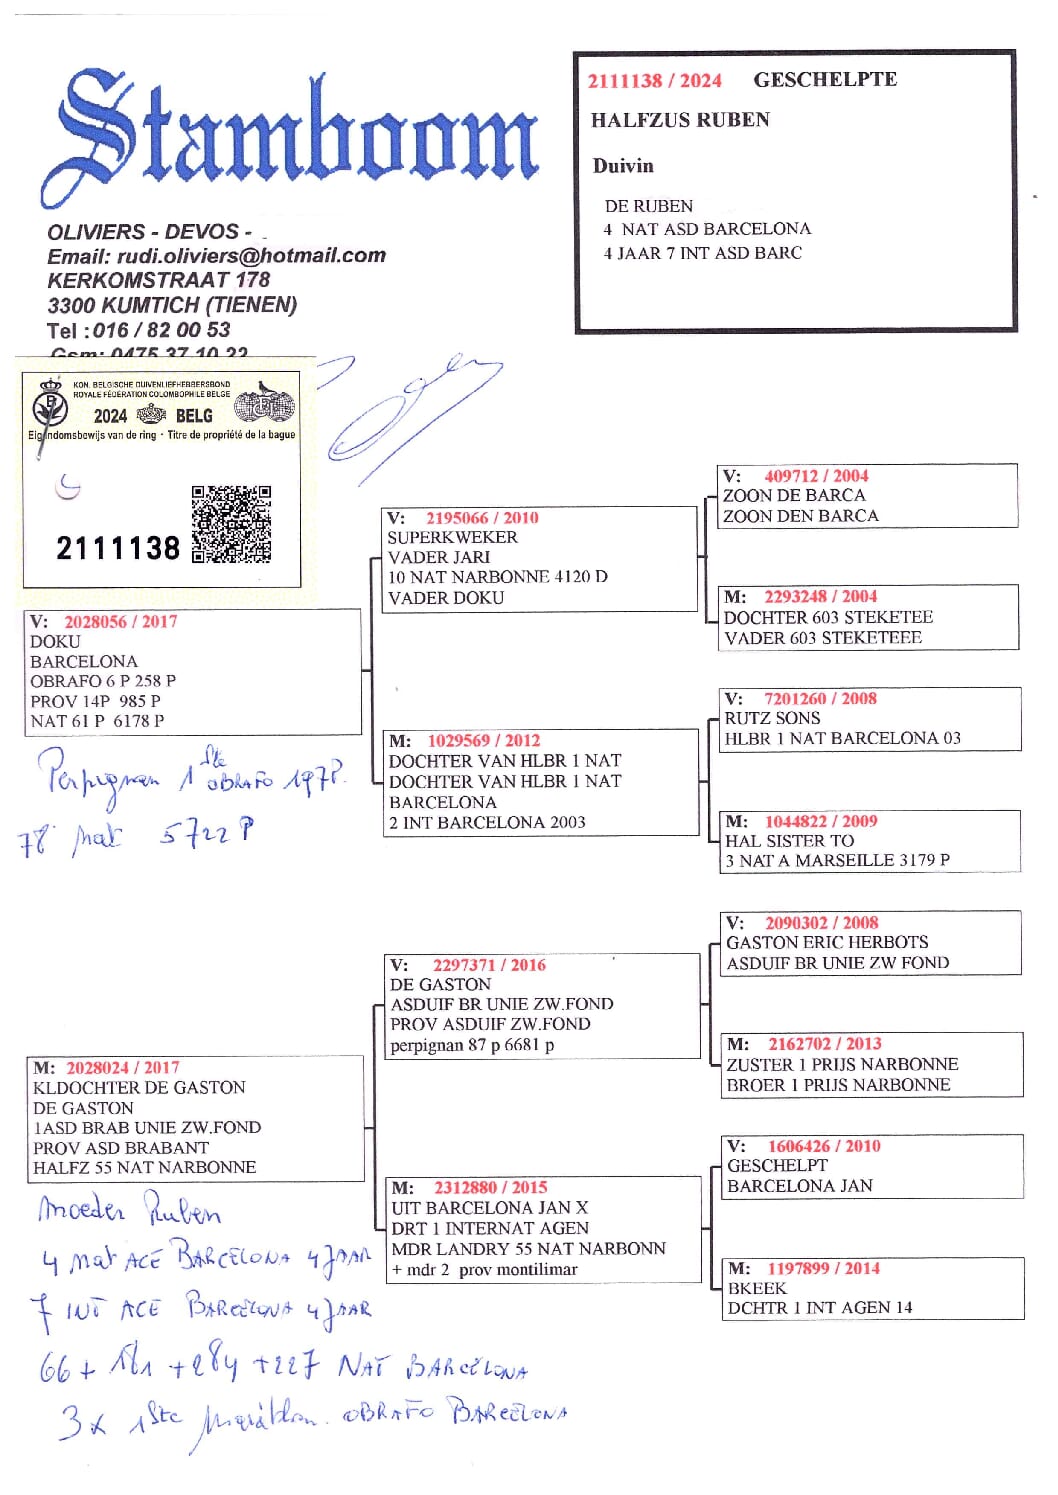 Stamboom
OLIVIERS - DEVOS -
Email: rudi.oliviers@hotmail.com
KERKOMSTRAAT 178
3300 KUMTICH (TIENEN)
Tel :016 / 82 00 53
Gsm: 0475 37 10 22
2111138 / 2024 GESCHELPTE
HALFZUS RUBEN
Duivin
DE RUBEN
4 NAT ASD BARCELONA
4 JAAR 7 INT ASD BARC
KON. BELGISCHE DUIVENLIEFHEBBERSBOND
ROYALE FÉDÉRATION COLOMBOPHILE BELGE
2024 BELG
Eigendomsbewijs van de ring - Titre de propriété de la bague
2111138
V: 2028056 / 2017
DOKU
BARCELONA
OBRAFO 6 P 258 P
PROV 14P 985 P
NAT 61 P 6178 P
Perpignan 1ste OBRAFO 197P.
78 nat 5722 P
V: 2195066 / 2010
SUPERKWEKER
VADER JARI
10 NAT NARBONNE 4120 D
VADER DOKU
M: 1029569 / 2012
DOCHTER VAN HLBR 1 NAT
DOCHTER VAN HLBR 1 NAT
BARCELONA
2 INT BARCELONA 2003
V: 409712 / 2004
ZOON DE BARCA
ZOON DEN BARCA
M: 2293248 / 2004
DOCHTER 603 STEKETEE
VADER 603 STEKETEEE
V: 7201260 / 2008
RUTZ SONS
HLBR 1 NAT BARCELONA 03
M: 1044822 / 2009
HAL SISTER TO
3 NAT A MARSEILLE 3179 P
M: 2028024 / 2017
KLDOCHTER DE GASTON
DE GASTON
1ASD BRAB UNIE ZW.FOND
PROV ASD BRABANT
HALFZ 55 NAT NARBONNE
Moeder Ruben
4 nat ACE BARCELONA 4 JAAR
7 INT ACE BARCELONA 4 JAAR
66 + 181 + 284 + 227 NAT BARCELONA
3x 1ste OBRAFO BARCELONA
V: 2297371 / 2016
DE GASTON
ASDUIF BR UNIE ZW.FOND
PROV ASDUIF ZW.FOND
perpignan 87 p 6681 p
M: 2312880 / 2015
UIT BARCELONA JAN X
DRT 1 INTERNAT AGEN
MDR LANDRY 55 NAT NARBONN
+ mdr 2 prov montilimar
V: 2090302 / 2008
GASTON ERIC HERBOTS
ASDUIF BR UNIE ZW FOND
M: 2162702 / 2013
ZUSTER 1 PRIJS NARBONNE
BROER 1 PRIJS NARBONNE
V: 1606426 / 2010
GESCHELPT
BARCELONA JAN
M: 1197899 / 2014
BKEEK
DCHTR 1 INT AGEN 14